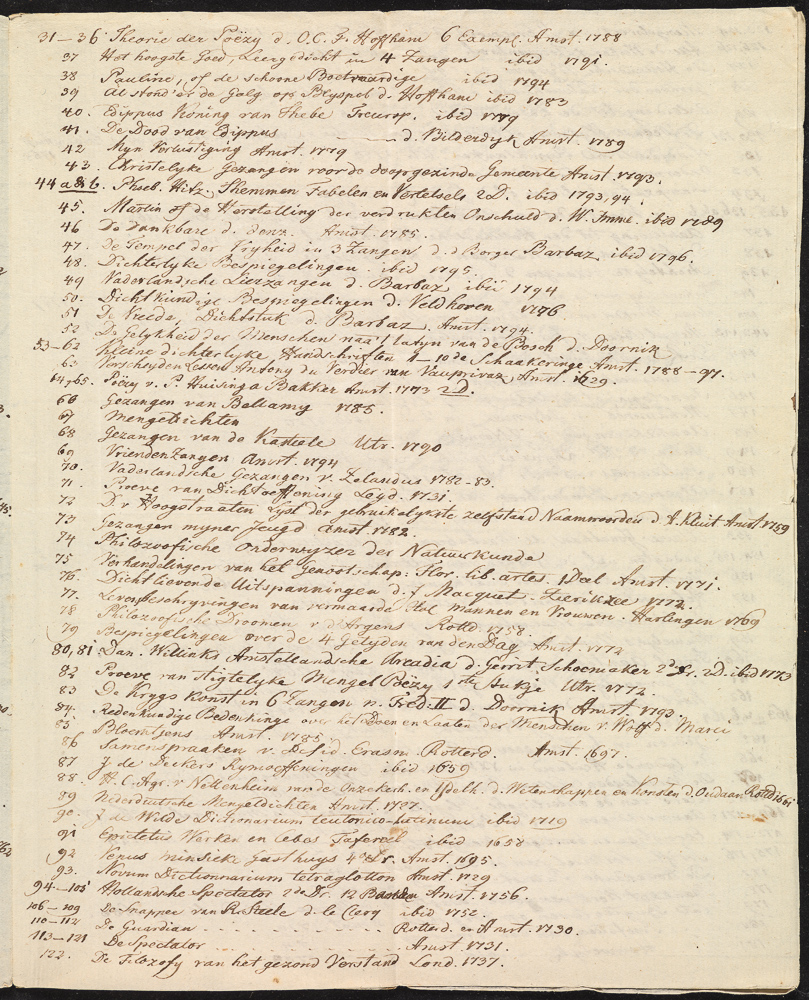 31–36 Theorie der Poëzy d. O.C.F. Hoffham 6 Exempl. Amst. 1788
37 Het hoogste Goed, Leergedicht in 4 Zangen ibid 1791.
38 Pauline, of de schoone Boetvaardige ibid 1794
39 Al stond'er de Galg op Blyspel d. Hoffham ibid 1783
40. Edippus Koning van Thebe Treursp. ibid 1779
41. De Dood van Edippus — d. Bilderdijk Amst. 1789
42 Myn Verlustiging Amst. 1779
43. Christelyke Gezangen voor de doopsgezinde Gemeente Amst. 1793.
44 a & b. Phoeb. Hitz. Themmen Fabelen en Vertelsels 2 D. ibid 1793, 94.
45. Martin of de Herstelling der verdrukten Onschuld d. W. Imme. ibid 1789
46 De dankbare d. donz. Amst. 1785.
47. De Tempel der Vryheid in 3 Zangen d. d Borger Barbaz ibid 1796.
48. Dichterlyke Bespiegelingen. ibid 1795.
49 Vaderlandsche Lierzangen d. Barbaz ibid 1794
50. Dichtkundige Bespiegelingen d. Veldhoven 1776
51 De Vreede, Dichtstuk d. Barbaz. Amst. 1794.
52 De Gelykheid der Menschen naa't latyn van de Bosch d. Doornik
53–62 Kleine dichterlyke Handschriften 1–10de Schaakeringe Amst. 1788–97.
63 Verscheyden Lessen Antony du Verdier van Vauprivaz Amst. 1629.
64, 65. Poëzy v. P. Huisinga Bakker Amst. 1773 2D.
66 Gezangen van Bellamy 1785.
67 Mengedichten
68 Gezangen van de Kasteele Utr. 1790
69 Vrienden Zangen Amst. 1794
70. Vaderlandsche Gezangen v. Zelandus 1782–83.
71. Proeve van Dichtoeffening Leyd. 1731.
72 D. v Hoogstraaten Lyst der gebruikelykste zelfstand Naamwoorden d. A. Kluit Amst. 1759
73 Gezangen myner Jeugd Amst. 1782.
74 Philozoofische Onderwyzer der Natuurkunde
75 Verhandelingen van het Genootschap: Flor. lib. artes. 1 Deel Amst. 1771.
76. Dichtlievende Uitspanningen d. J Macquet. Zierikzee 1772.
77. Levensbeschryvingen van vermaarde Hol mannen en Vrouwen. Harlingen 1769
78 Philozoofische Droomen v d'Argens Rottd. 1758.
79 Bespiegelingen over de 4 Getyden van den Dag Amst. 1772
80, 81 Dan. Willinks Amstellandsche Arcadia d. Gerrit Schoenmaker 2de Dr. 2D. ibid 1773
82 Proeve van Stigtelyke Mengel Poëzy 1ste Stukje Utr. 1772.
83 De Krygs Konst in 6 Zangen v. Fred: II d. Doornik Amst. 1793.
84. Redenkundige Bedenkinge over het Doen en Laaten der Menschen v. Wolf d. Marci
85 Bloemtjens Amst. 1785.
86 Samenspraaken v. Desid. Erasm. Rotterd. Amst. 1697.
87 J. de Deckers Rymoeffeningen ibid 1659
88. H.C. Agr. v Nettenheim van de Onzekerh. en Ydelh. d. Wetenschappen en Konsten d. Oudaan Rottd 1661
89 Nederduitsche Mengeldichten Amst. 1727.
90. J. de Wildes Dictionarium teutonico-latinum ibid 1719
91 Epictetus Werken en Cebes Tafereel ibid 1658
92 Venus minsieke Gasthuys 4de Dr. Amst. 1695.
93. Novum Dictionnarium tetraglotton Amst. 1729
94–105 Hollandsche Spectator 2de Dr. 12 Banden Amst. 1756.
106–109 De Snapper van R. Steele d. le Clerq ibid 1752.
110–112 De Guardian - - - - - - Rotterd. en Amst. 1730.
113–121 De Spectator - - - - - - Amst. 1731.
122. De Filozofy van het gezond Verstand Lond. 1737.